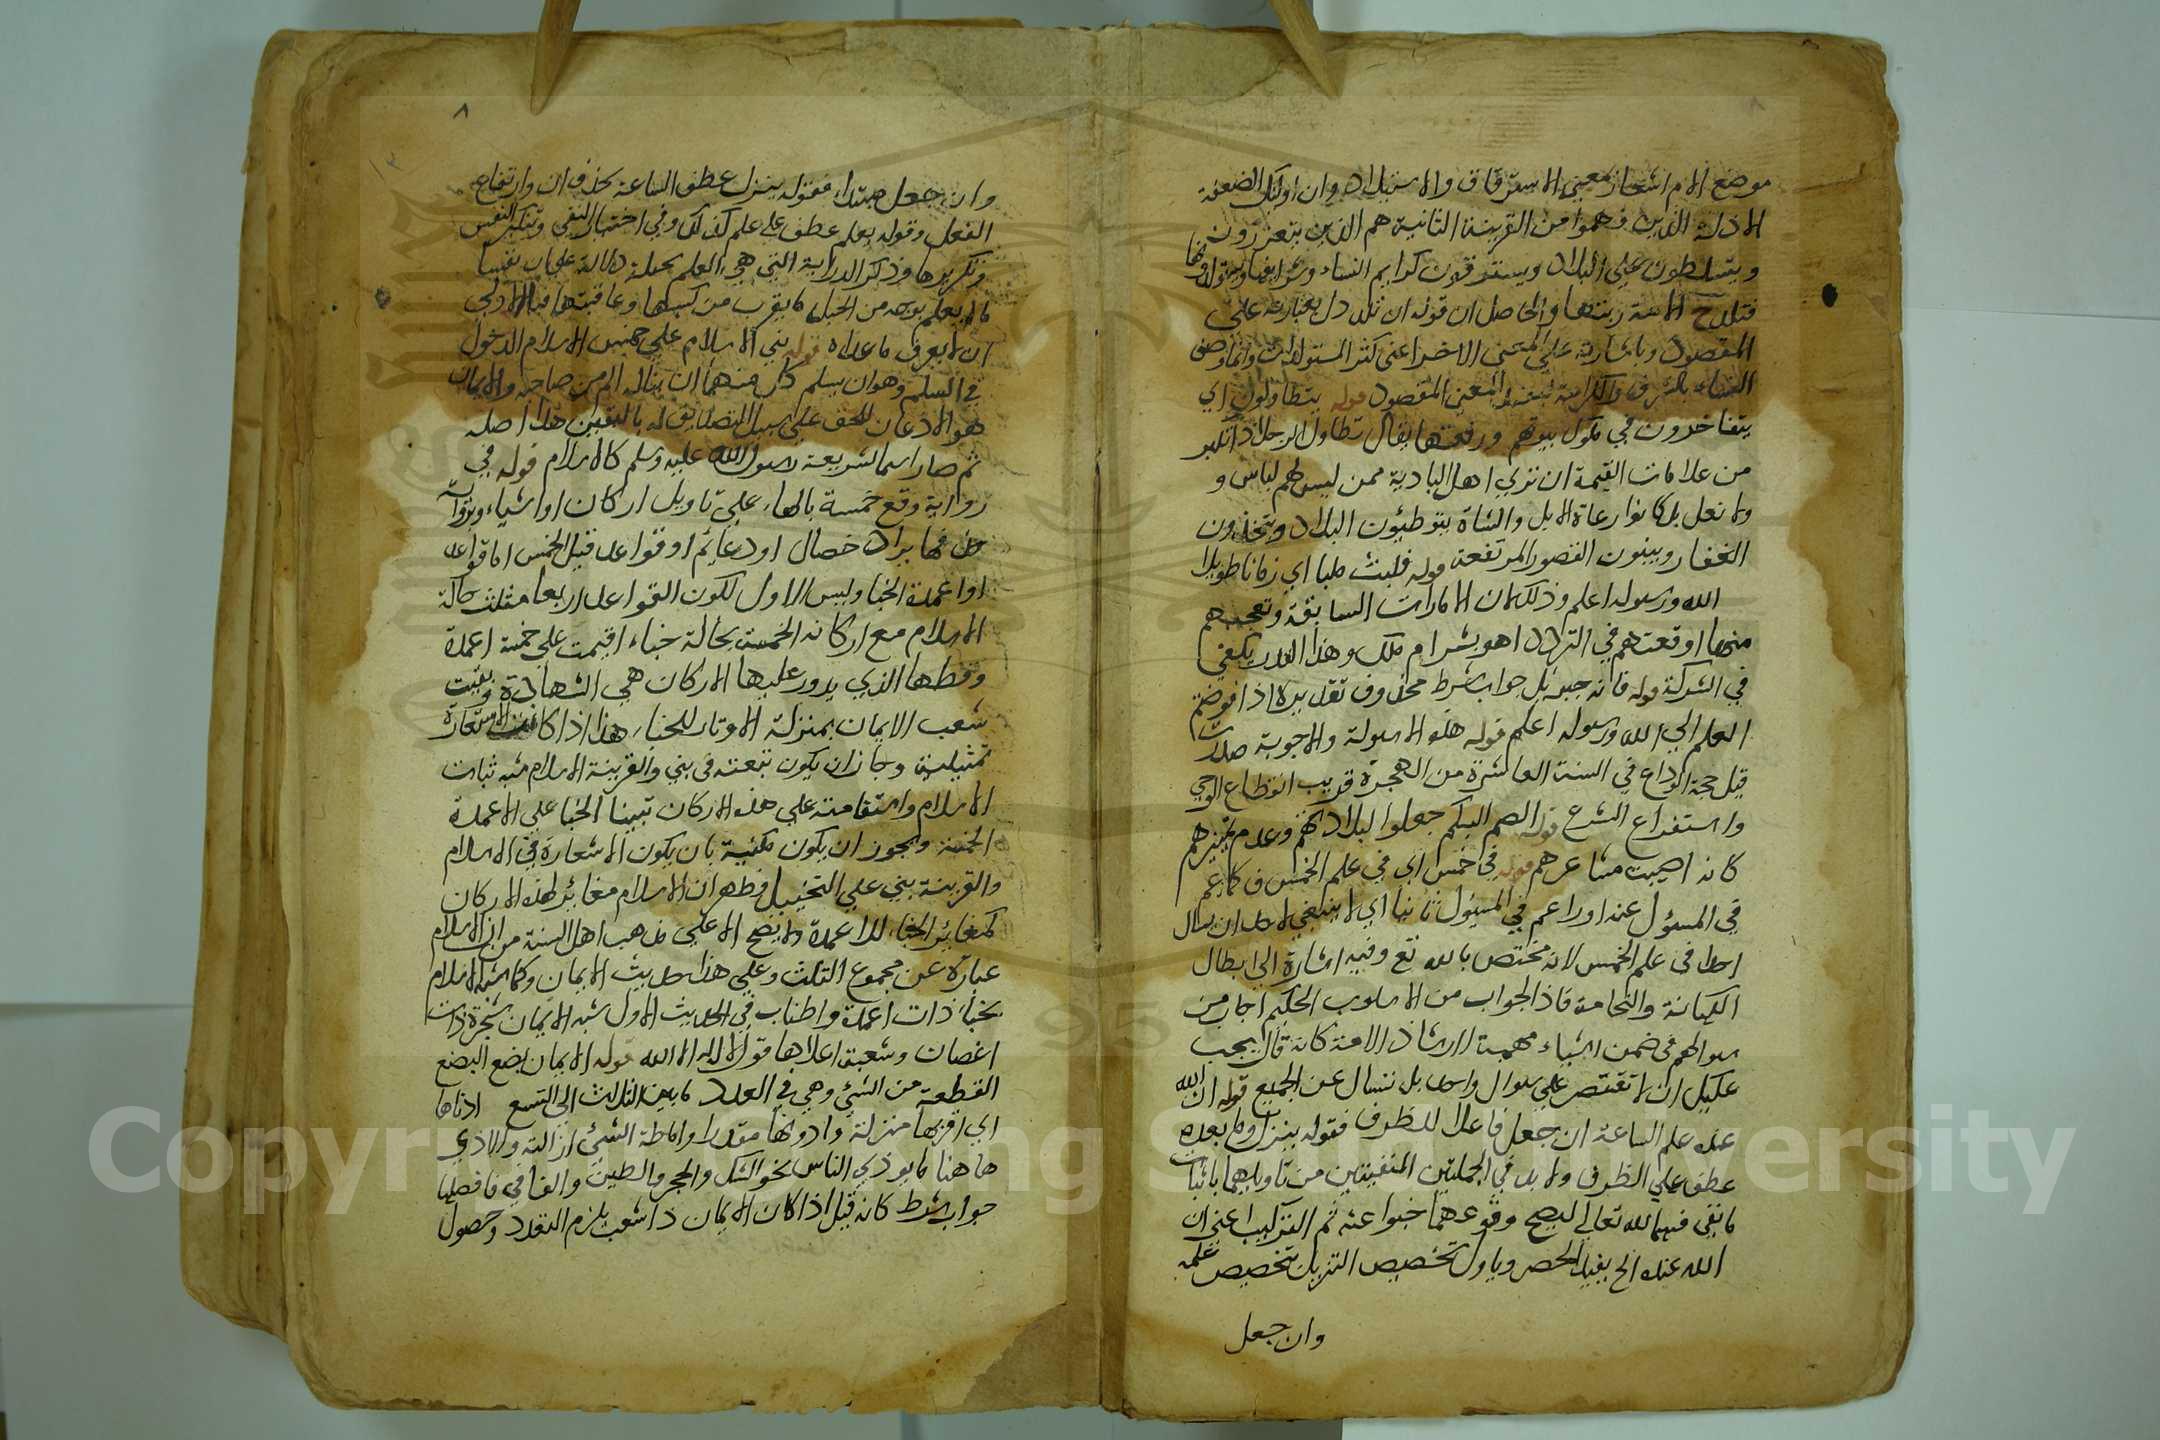 موضع الام اشعار بمعنى الاسترقاق والاستيلاد وان اولئك الضعفة
الاذلة الذين فهموا من القرينة الثانية هم الذين يتعززون
ويتسلطون على البلاد ويسترقون كرايم النساء وشرايفها ويستولدونها
فتلد الامة ربتها والحاصل ان قوله ان تلد دل بعبارته على
المقصود وباشارته على المعنى الاخر اعنى كثر المستولدات وانما وصف
النساء بالشرف والكرامة المعنى المقصود قوله يتطاولون اي
يتفاخرون في طول بيوتهم ورفعتها يقال تطاول الرجل اذا تكبر
من علامات القيمة ان ترى اهل البادية ممن ليس لهم لباس و
ولا نعل بل كانوا رعاة الابل والشاة يتوطنون البلاد ويتخذون
العقار ويبنون القصور المرتفعة قوله فلبث مليا اي زمانا طويلا
الله ورسوله اعلم وذلك ان الامارات السابقة وتعجبهم
منها اوقعتهم في التردد اهو بشر ام ملك وهذا القدر يكفي
في الشركة قوله فانه جبرئل جواب شرط محذوف تقديره اذا فوضتم
العلم الى الله ورسوله اعلم قوله هذه الاسولة والاجوبة صدرت
قبل حجة الوداع في السنة العاشرة من الهجرة قريب انقطاع الوحي
واستقراع الشرع قوله الصم البكم جعلوا لبلادتهم وعدم تميزهم
كانه اصيبت مشاعرهم قوله في خمس اي في علم الخمس فكما عم
في المسؤل عنه اولا عم في المسؤل ثانيا اي لا ينبغي لاحد ان يسال
احدا في علم الخمس لانه مختص بالله تع وفيه اشارة الى ابطال
الكهانة والنجامة فاذا الجواب من الاسلوب الحكيم اجاب من
سوالهم في ضمن اشياء مهمة ارشادا للامة كانه قال يجب
عليكم ان لا تقتصر على سوال واحد بل نسال عن الجميع قوله ان الله
عنده علم الساعة ان جعل فاعلا للظرف فقوله ينزل وما بعده
عطف على الظرف ولا بد في الجملتين المنفيتين من تاويلهما باثبات
ما نفى فيهما لله تعالى ليصح وقوعهما خبرا عنه ثم التركيب اعنى ان
الله عنده الخ يفيد الحصر وياول تخصيص التنزيل بتخصيص علمه
وان جعل
٨
وان جعل مبتدا، فقوله ينزل عطف الساعة بحذف ان وارتفاع
الفعل وقوله يعلم عطف على علم كذلك وفي اختيار النفي وتنكير النفس
وتكريرها وذكر الدراية التي هي العلم بحيلة دلالة على ان نفسا
ما لا يعلم بوجه من الحيل ما يقرب من كسبها وعاقبتها فبالاولى
ان لا يعرف ما عداه قوله بني الاسلام على خمس الاسلام الدخول
في السلم وهو ان يسلم كل منهما ان يناله الم من صاحبه والايمان
هو الاذعان للحق على سبيل التصديق له باليقين هذا اصله
ثم صار اسما لشريعة رسول الله عليه وسلم كالاسلام قوله في
رواية وقع خمسة بالهاء على تاويل اركان او اشياء وبرواية
حذفها يراد خصال او دعائم او قواعد قيل الخمس اما قواعد
او اعمدة الخبا وليس الاول لكون القواعد اربعا مثلت حالة
الاسلام مع اركانه الخمسة بحالة خباء اقيمت على خمسة اعمدة
وقطبها الذي يدور عليها الاركان هي الشهادة وبقيت
شعب الايمان بمنزلة الاوتاد للخباء هذا اذا كانت الاستعارة
تمثيلية وجاز ان يكون تبعته في بني والقرينة الاسلام شبه ثبات
الاسلام واستقامته على هذه الاركان تبينا الخبا على الاعمدة
الخمسة ويجوز ان يكون مكنية بان يكون الاستعارة في الاسلام
والقرينة بني على التخييل فظهر ان الاسلام مغائر لهذه الاركان
كمغائر الخباء للاعمدة ولا يصح الا على مذهب اهل السنة من ان الاسلام
عبارة عن مجموع الثلث وعلى هذا حديث الايمان وكما شبه الاسلام
بخبا ذات اعمدة واطناب في الحديث الاول شبه الايمان شجرة ذات
اغصان وشعبة اعلاها قول لا اله الا الله قوله الايمان بضع البضع
القطعة من الشئ وهي في العدد ما بين الثلاث الى التسع ادناها
اي اقربها منزلة وادونها مقدرا واماطة الشئ ازالته والاذى
هاهنا ما يوذي الناس نحو الشوك والحجر والطين والفا في فافضلها
جواب شرط كانه قيل اذا كان الايمان ذا شعب يلزم التعدد وحصول
Copyright © King Saud University